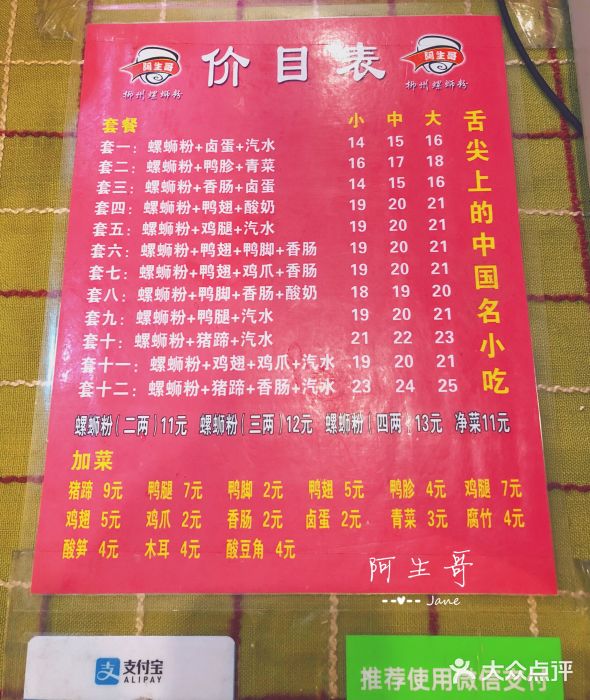 阿生哥
柳州螺蛳粉
价目表
阿生哥
柳州螺蛳粉
套餐 小 中 大
套一：螺蛳粉+卤蛋+汽水 14 15 16
套二：螺蛳粉+鸭胗+青菜 16 17 18
套三：螺蛳粉+香肠+卤蛋 14 15 16
套四：螺蛳粉+鸭翅+酸奶 19 20 21
套五：螺蛳粉+鸡腿+汽水 19 20 21
套六：螺蛳粉+鸭翅+鸭脚+香肠 19 20 21
套七：螺蛳粉+鸭翅+鸡爪+香肠 19 20 21
套八：螺蛳粉+鸭脚+香肠+酸奶 18 19 20
套九：螺蛳粉+鸭腿+汽水 19 20 21
套十：螺蛳粉+猪蹄+汽水 21 22 23
套十一：螺蛳粉+鸡翅+鸡爪+汽水 19 20 21
套十二：螺蛳粉+猪蹄+香肠+汽水 23 24 25
舌尖上的中国名小吃
螺蛳粉（二两）11元 螺蛳粉（三两）12元 螺蛳粉（四两）13元 净菜11元
加菜
猪蹄 9元 鸭腿 7元 鸭脚 2元 鸭翅 5元 鸭胗 4元 鸡腿 7元
鸡翅 5元 鸡爪 2元 香肠 2元 卤蛋 2元 青菜 3元 腐竹 4元
酸笋 4元 木耳 4元 酸豆角 4元
阿生哥
--♥-- Jane
支 支付宝
ALIPAY
推荐使用微信支付
大众点评